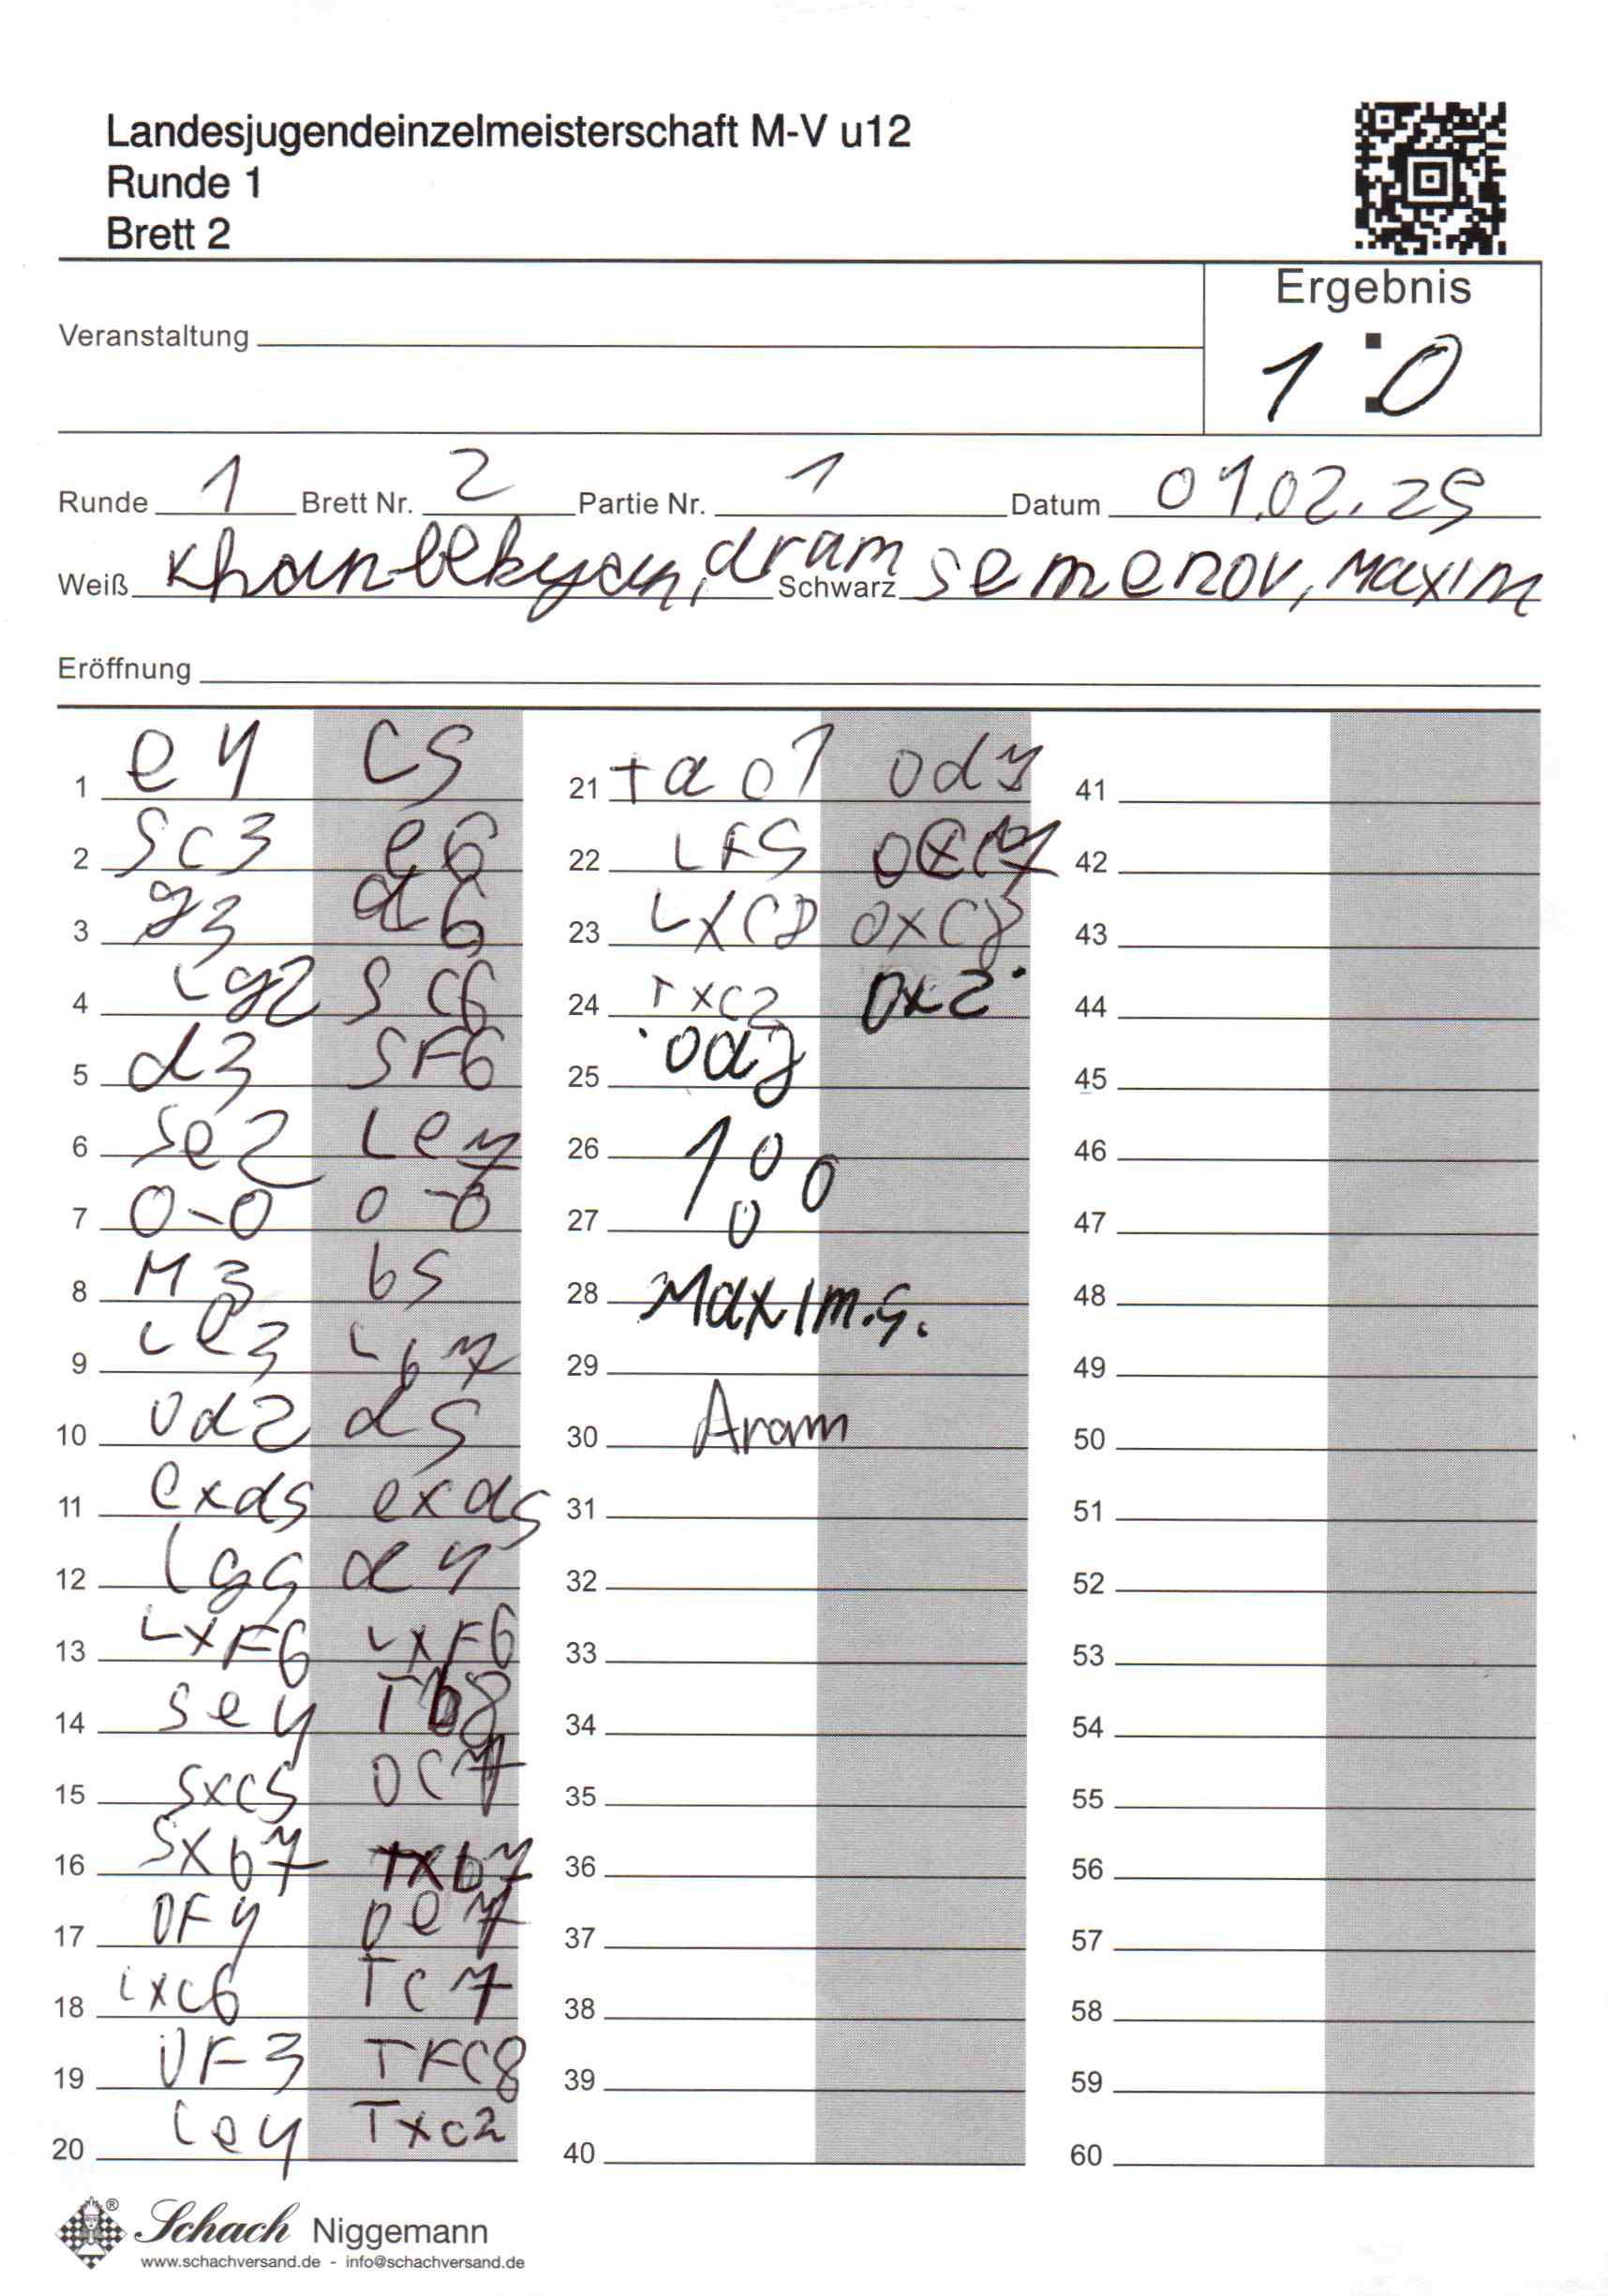 Landesjugendeinzelmeisterschaft M-V u12
Runde 1
Brett 2
Ergebnis
1:0
Veranstaltung
Runde 1 Brett Nr. 2 Partie Nr. 1 Datum 01.02.25
Weiß Khanbekyan, Aram Schwarz Semenov, Maxim
Eröffnung
1 e4 c5
2 Sc3 e6
3 g3 d6
4 Lg2 Sc6
5 d3 SF6
6 Se2 Le7
7 0-0 0-0
8 H3 b5
9 Le3 Lb7
10 Dd2 d5
11 exd5 exd5
12 Lg5 d4
13 LxF6 LxF6
14 Se4 Tb8
15 Sxc5 Dc7
16 Sxb7 Txb7
17 DF4 De7
18 Lxc6 Tc7
19 DF3 TFC8
20 Le4 Txc2
21 Tad1 Dd7
22 LF5
23 LXC8 DXC8
24 Txc2 Dx2
25 Dd8
26 1 0 0
27 0
28 Maxim.S.
29
30 Aram
31
32
33
34
35
36
37
38
39
40
41
42
43
44
45
46
47
48
49
50
51
52
53
54
55
56
57
58
59
60
Schach Niggemann
www.schachversand.de - info@schachversand.de